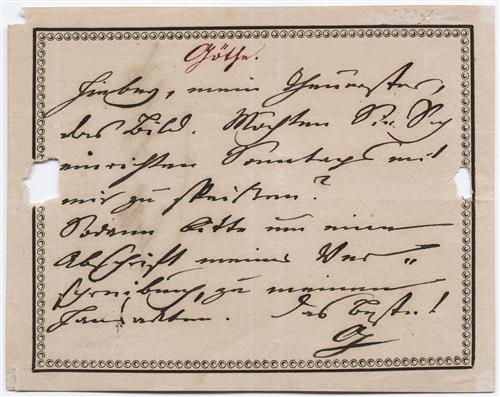 Göthe.
Hierbey, mein Theuerster,
das Bild. Möchten Sie Sich
einrichten Sonntags mit
mir zu speißen?
Sodann bitte um eine
Abschrift meiner Ver„
schreibung, zu meinen
Hausackten. Das Beste!
G